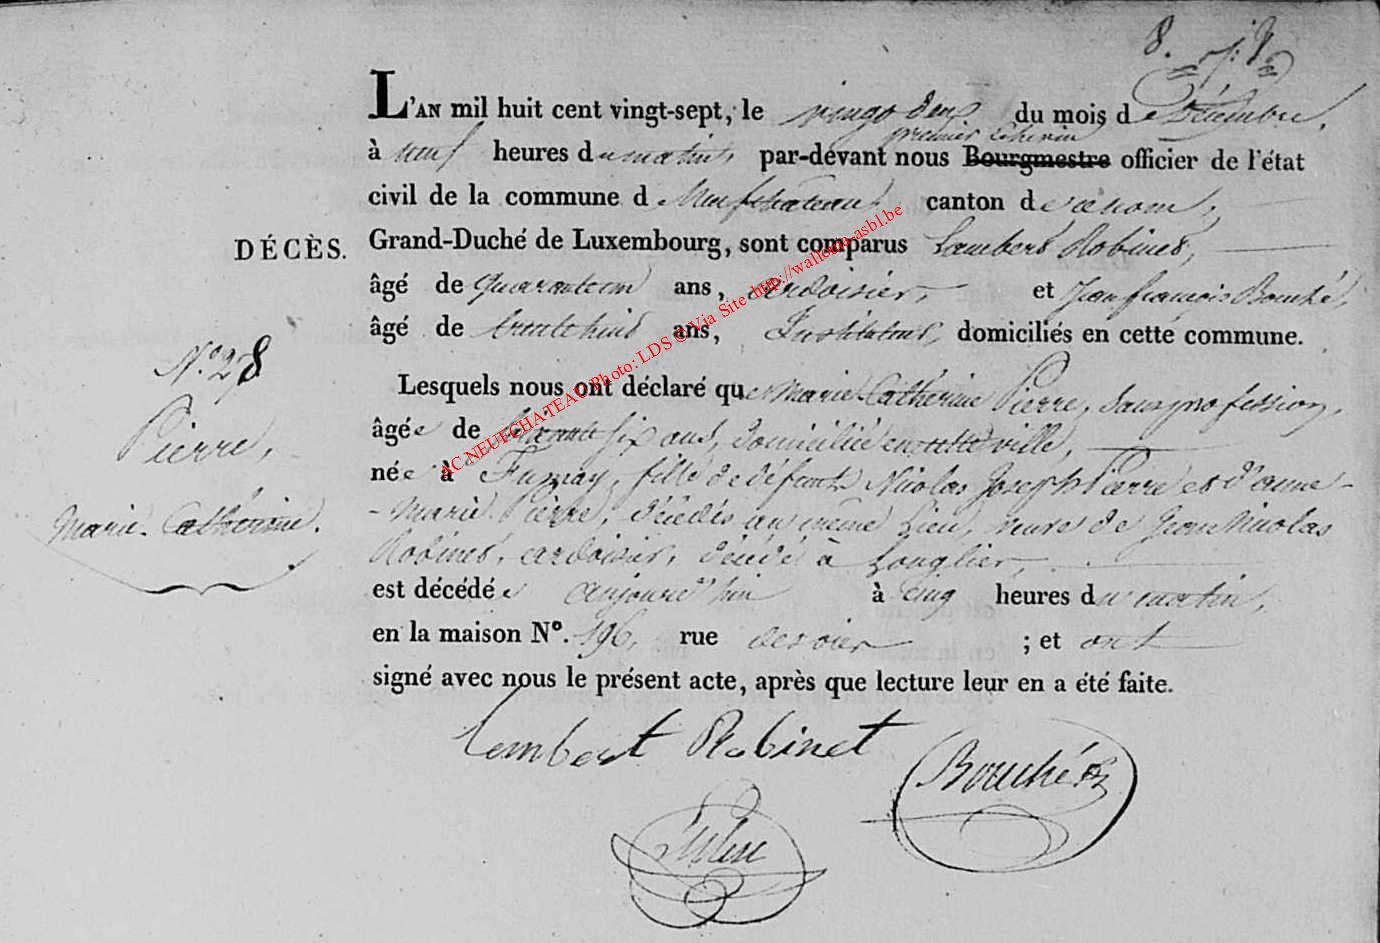 8.
L'AN mil huit cent vingt-sept, le vingt deux du mois de Décembre,
premier échevin
à neuf heures du matin, par-devant nous Bourgmestre officier de l'état
civil de la commune de Neufchateau, canton de
Grand-Duché de Luxembourg, sont comparus Lambert Robinet,
DÉCÈS.
âgé de Quarante un ans, ardoisier, et Jean françois Bouché,
âgé de trente huit ans, Instituteur, domiciliés en cette commune.
N.° 28
Pierre,
Marie-Catherine.
Lesquels nous ont déclaré que Marie Catherine Pierre, sans profession,
âgée de six ans, domiciliée en cette ville,
née à Fumay, fille de défunts Nicolas Joseph Pierre et d'anne-
-Marie Pierre, décédés au même lieu, veuve de Jean Nicolas
Robinet, ardoisier, décédé à Longlier,
est décédée aujourd'hui à cinq heures du matin,
en la maison N°. 196, rue ; et ont
signé avec nous le présent acte, après que lecture leur en a été faite.
Lambert Robinet
Bouché
AC NEUFCHATEAU Photo: LDS © Via Site http://wallonia-asbl.be